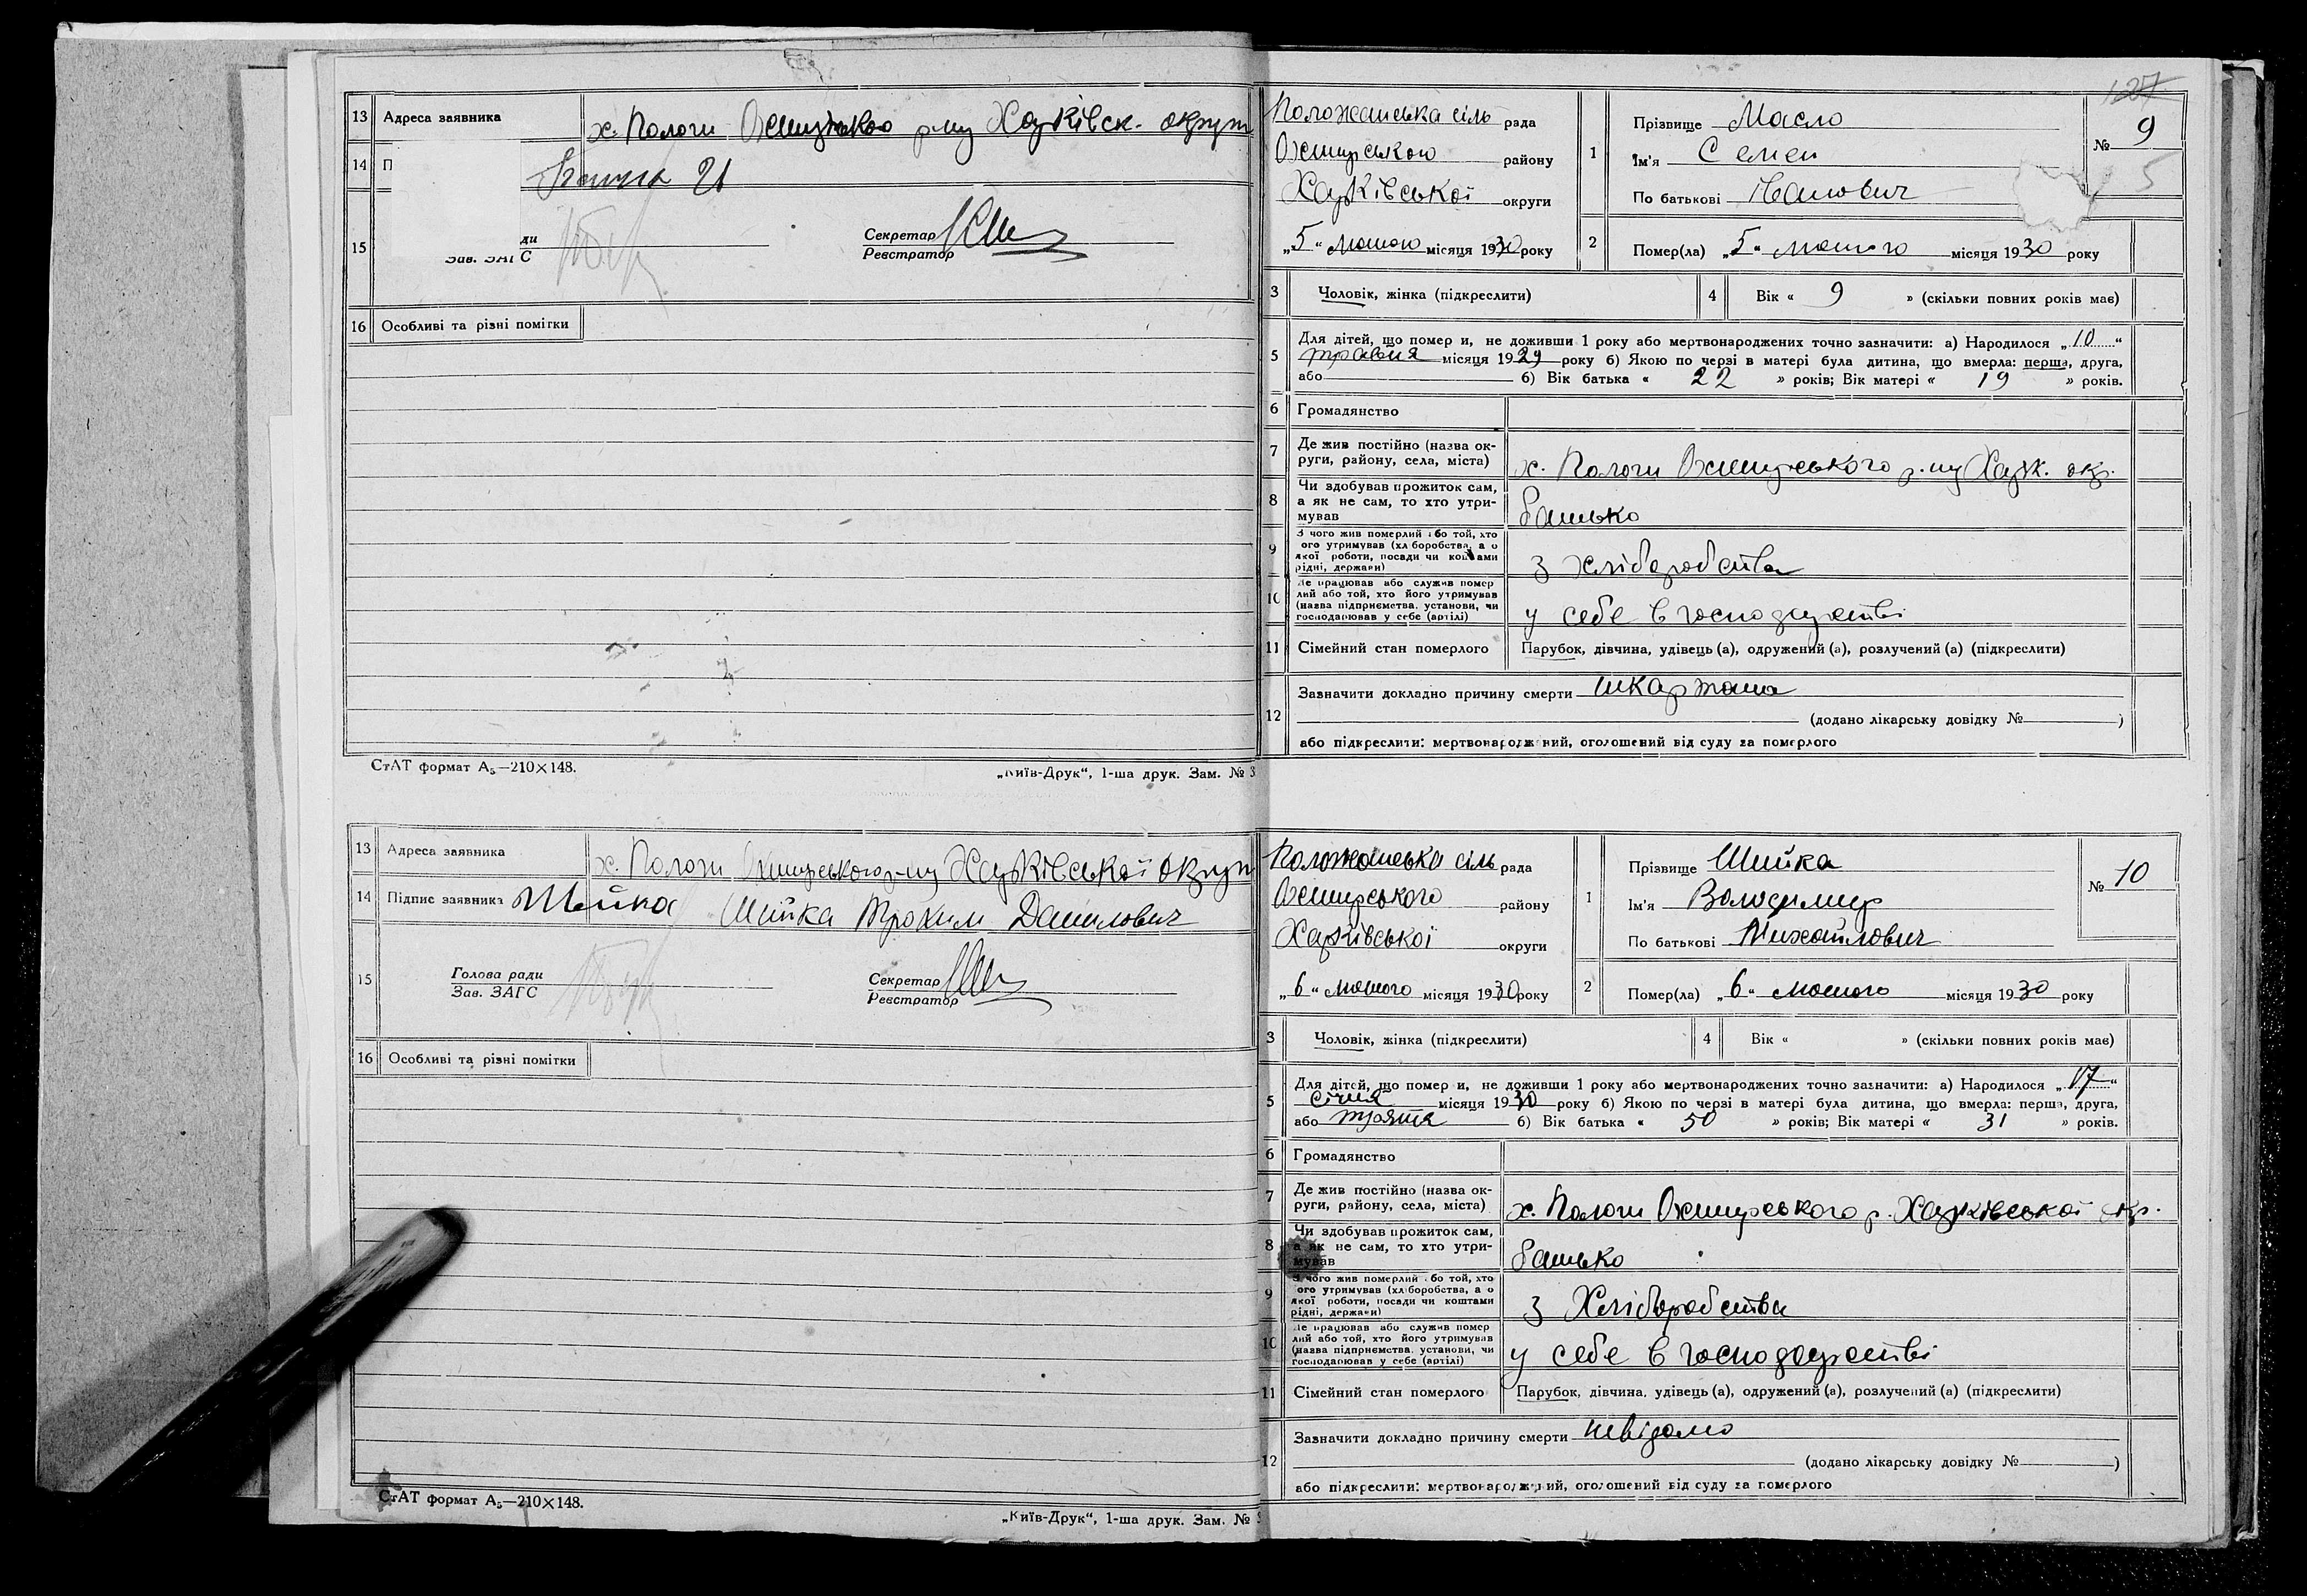 13 Адреса заявника х. Пологи Охтирського р-ну Харківск. округи
14 П
15 ди Секретар
Зав. ЗАГС Реєстратор
16 Особливі та різні помітки
СтАТ формат А₅—210×148.
„Київ-Друк“, 1-ша друк. Зам. № 3
13 Адреса заявника х. Пологи Охтирського р-ну Харківської округи
14 Підпис заявника Шийка Шийка Трохим Данилович
15 Голова ради Секретар
Зав. ЗАГС Реєстратор
16 Особливі та різні помітки
СтАТ формат А₅—210×148.
„Київ-Друк“, 1-ша друк. Зам. №
127
Положанська сіль рада
Охтирського району
Харківської округи
„5“ лютого місяця 1930 року
1 Прізвище Масло
Ім'я Семен
По батькові Іванович
№ 9
5
2 Помер(ла) „5“ лютого місяця 1930 року
3 Чоловік, жінка (підкреслити) 4 Вік « 9 » (скільки повних років має)
5 Для дітей, що померли, не доживши 1 року або мертвонароджених точно зазначити: а) Народилося „10“
травня місяця 1929 року б) Якою по черзі в матері була дитина, що вмерла: перша, друга,
або б) Вік батька « 22 » років; Вік матері « 19 » років.
6 Громадянство
7 Де жив постійно (назва округи, району, села, міста) х. Пологи Охтирського р-ну Харк. окр.
8 Чи здобував прожиток сам,
а як не сам, то хто утримував батько
9 З чого жив померлий або той, хто
ого утримував (хліборобства, а о
якої роботи, посади чи коштами
рідні, держави) з хліборобства
10 Де працював або служив помер
лий або той, хто його утримував
(назва підприємства, установи, чи
господарював у себе (артілі) у себе в господарстві
11 Сімейний стан померлого Парубок, дівчина, удівець (а), одружений (а), розлучений (а) (підкреслити)
12 Зазначити докладно причину смерти шкарлатина
(додано лікарську довідку № )
або підкреслити: мертвонароджений, оголошений від суду за померлого
Положанська сіль рада
Охтирського району
Харківської округи
„6“ лютого місяця 1930 року
1 Прізвище Шийка
Ім'я Володимир
По батькові Михайлович
№ 10
2 Помер(ла) „6“ лютого місяця 1930 року
3 Чоловік, жінка (підкреслити) 4 Вік « » (скільки повних років має)
5 Для дітей, що померли, не доживши 1 року або мертвонароджених точно зазначити: а) Народилося „17“
Січня місяця 1930 року б) Якою по черзі в матері була дитина, що вмерла: перша, друга,
або третя б) Вік батька « 50 » років; Вік матері « 31 » років.
6 Громадянство
7 Де жив постійно (назва округи, району, села, міста) х. Пологи Охтирського р. Харківської окр.
8 Чи здобував прожиток сам,
а як не сам, то хто утримував батько
9 З чого жив померлий або той, хто
ого утримував (хліборобства, а о
якої роботи, посади чи коштами
рідні, держави) з Хліборобства
10 Де працював або служив помер
лий або той, хто його утримував
(назва підприємства, установи, чи
господарював у себе (артілі) у себе в господарстві
11 Сімейний стан померлого Парубок, дівчина, удівець (а), одружений (а), розлучений (а) (підкреслити)
12 Зазначити докладно причину смерти невідомо
(додано лікарську довідку № )
або підкреслити: мертвонароджений, оголошений від суду за померлого